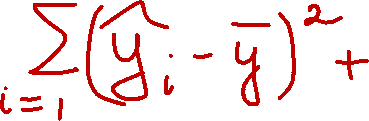 \sum_{i=1} (\hat{y}_i - \overline{y})^2 +